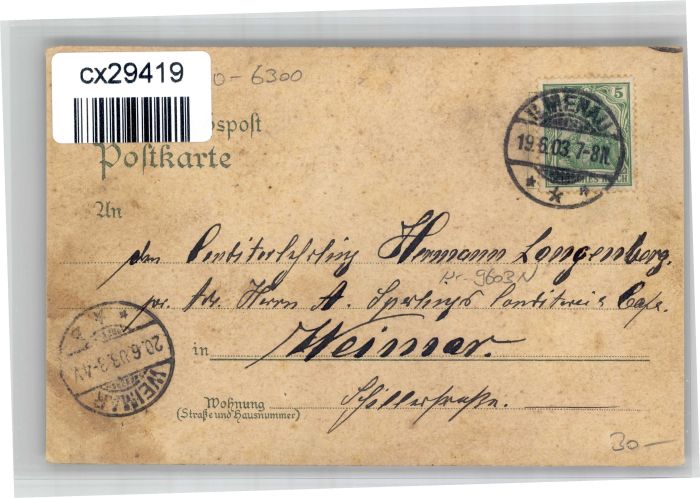 cx29419
0-6300
spost
Postkarte
An
5
ILMENAU
19.6.03. 7-8N.
REICH
den Conditorlehrling Hermann Langenberg.
Kr-9603N
pr. Adr. Herrn A. Sperling's Conditorei & Cafe.
in Weimar.
WEIMAR
20.6.03. 3-4V.
Wohnung
(Straße und Hausnummer)
Schillerstraße.
30-